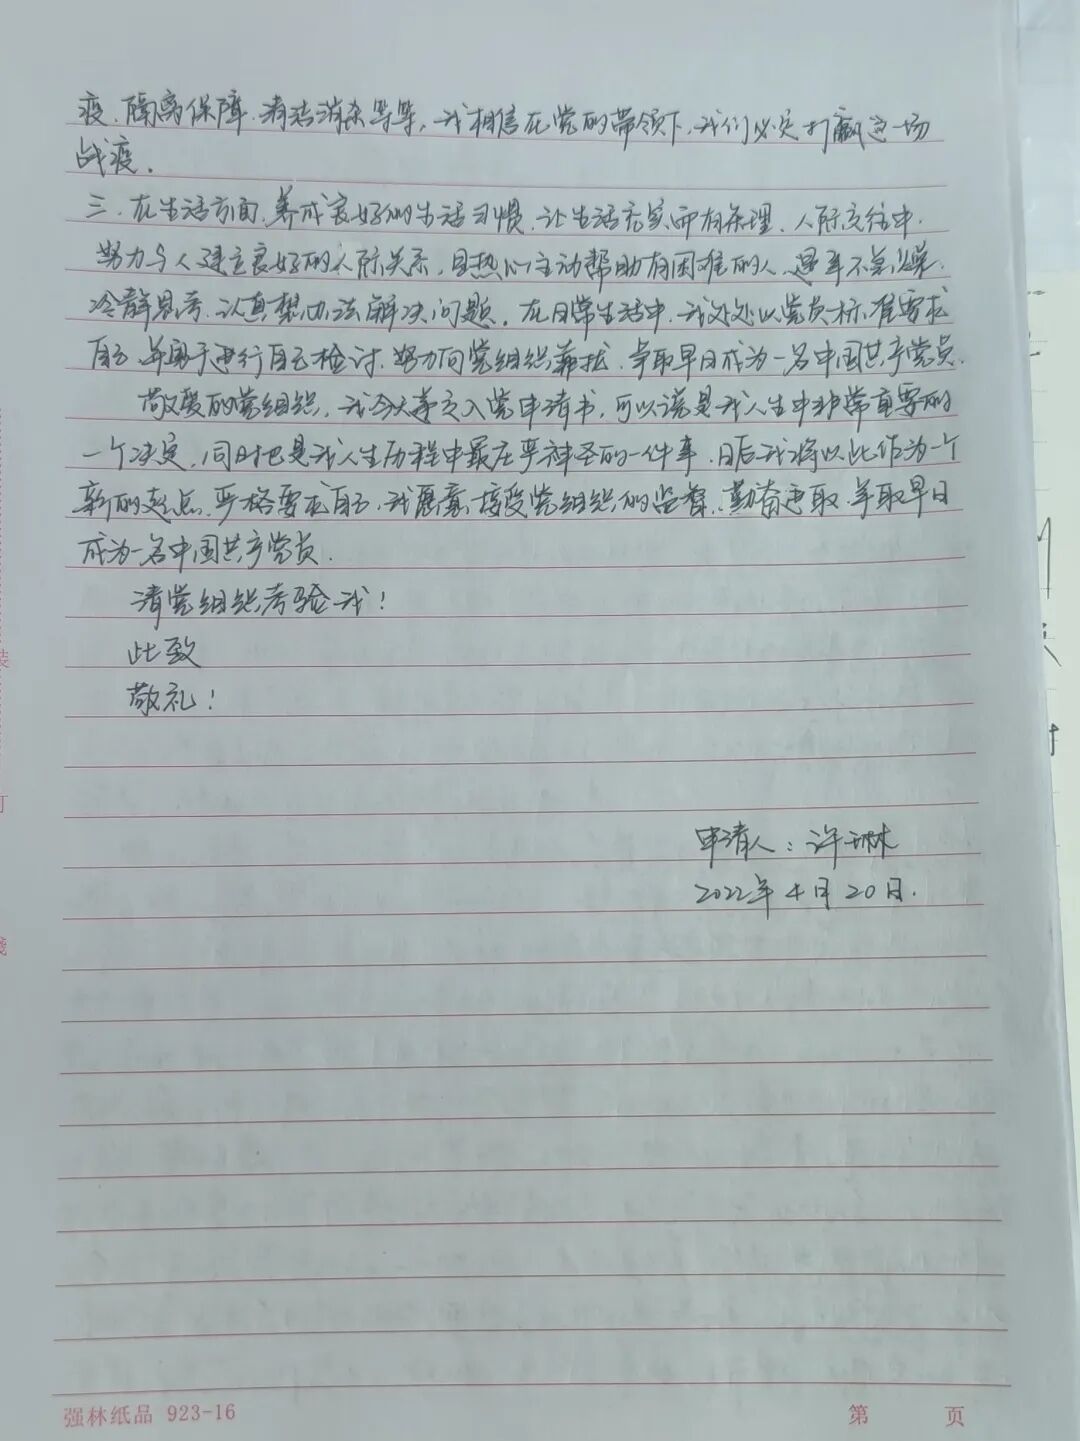 疫、隔离保障、清洁消杀等等，我相信在党的带领下，我们必定打赢这一场
战疫。
三、在生活方面，养成良好的生活习惯，让生活充实而有条理，人际交往中，
努力与人建立良好的人际关系，且热心主动帮助有困难的人，遇事不急躁，
冷静思考，认真想办法解决问题。在日常生活中，我处处以党员标准要求
自己，并勇于进行自己检讨，努力向党组织靠拢，争取早日成为一名中国共产党员。
敬爱的党组织，我今天递交入党申请书，可以说是我人生中非常重要的
一个决定，同时也是我人生历程中最庄严神圣的一件事，日后我将以此作为一个
新的起点，严格要求自己，我愿意接受党组织的监督，勤奋进取，争取早日
成为一名中国共产党员。
请党组织考验我！
此致
敬礼！
申请人：许琳
2022年4月20日.
装
订
线
强林纸品 923-16
第 页